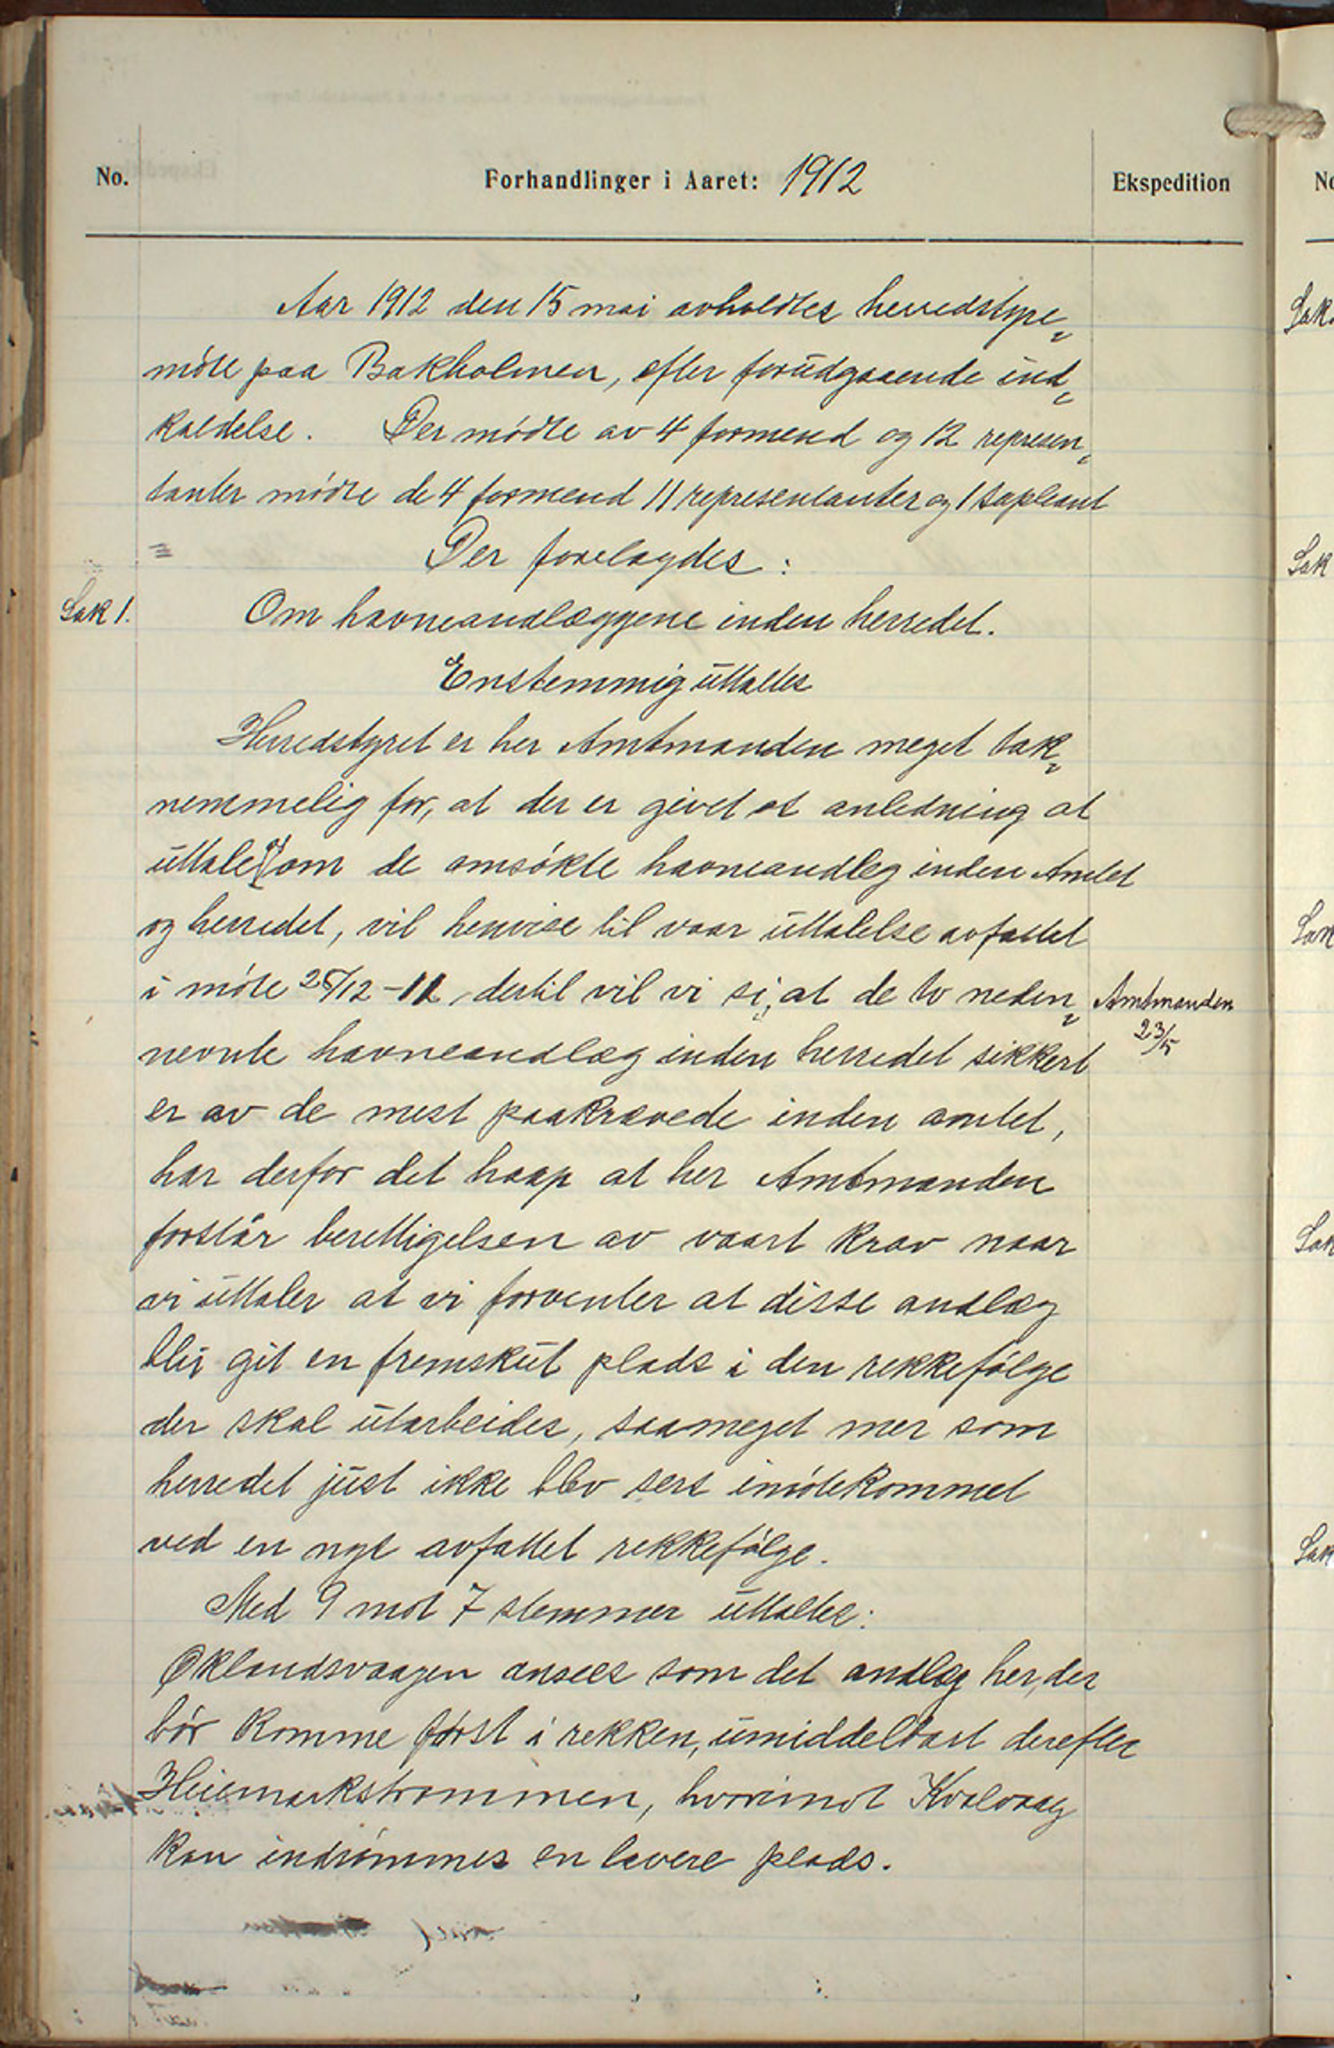 No.
Forhandlinger i Aaret: 1912
Ekspedition
Aar 1912 den 15 mai avholdtes herredstyre„
möte paa Bakholmen, efter forudgaaende ind„
kaldelse. Der mødte av 4 formend og 12 represen„
tanter mødte de 4 formend 11 representanter og 1 supleant
Der forelagdes:
Sak 1.
Om havneandlæggene inden herredet.
Enstemmig uttaltes
Herredstyret er her Amtmanden meget tak„
nemmelig for, at der er givet et anledning at
uttale om de omsökte havneandleg inden Amtet
og herredet, vil henvise til vaar uttalelse avfattet
i möte 28/12-11, dertil vil vi si, at de to neden„
nevnte havneandlæg inden herredet sikkert
er av de mest paakrævede inden amtet,
har derfor det haap at her Amtmanden
forstår berettigelsen av vaart krav naar
vi uttaler at vi forventer at disse andlæg
blir git en fremskut plads i den rekkefölge
der skal utarbeides, saameget mer som
herredet just ikke blev sers imötekommet
ved en nyt avfattet rekkefölge.
Med 9 mot 7 stemmer uttaltes:
Øklandsvaagen ansees som det andlæg her, der
bör komme först i rekken, umiddelbart derefter
Heiemarkstrømmen, hvorimot Kvalvaag
kan indrömmes en lavere plads.
Amtmanden
23/5
No
Sak
Sak
Sak
Sak
Sak